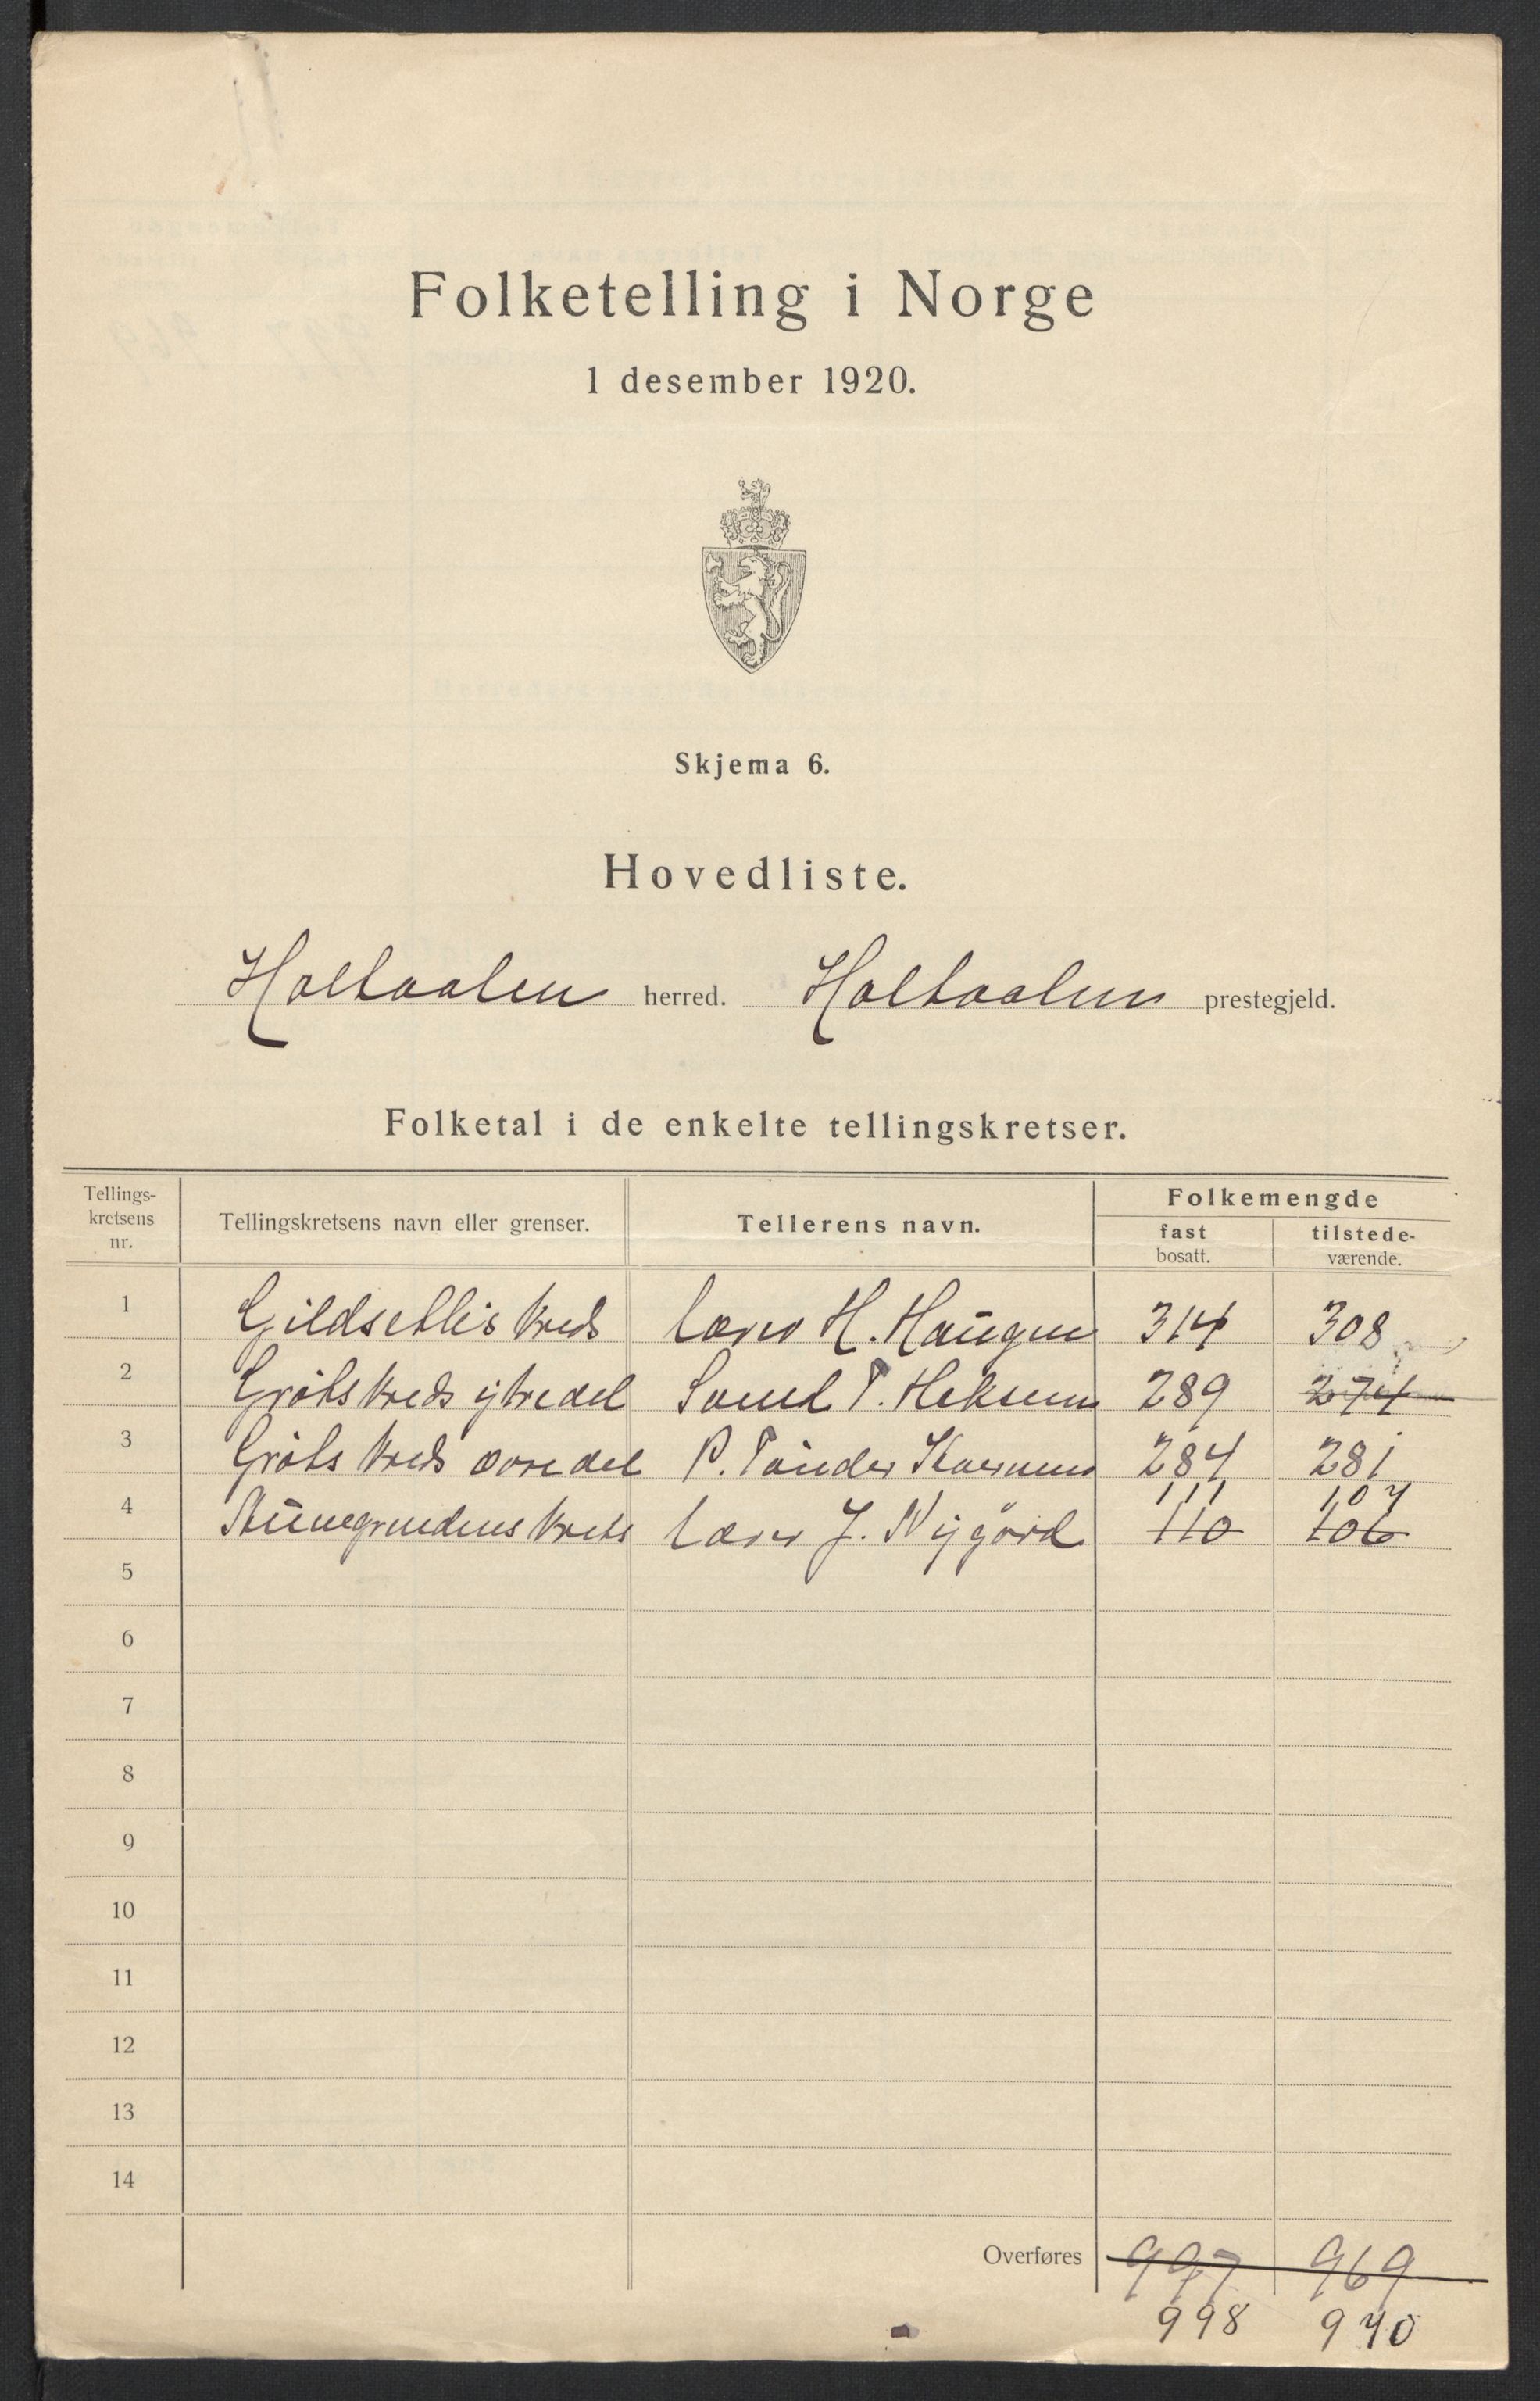 Folketelling i Norge
1 desember 1920.
Skjema 6.
Hovedliste.
Holtaalen herred. Holtaalen prestegjeld.
Folketal i de enkelte tellingskretser.
Tellings-
kretsens
nr.
Tellingskretsens navn eller grenser.
Tellerens navn.
Folkemengde
fast
bosatt.
tilstede-
værende.
1 Gildsetlis kreds lærer H. Haugen 314 308
2 Grøts kreds ytre del T. 289 274
3 Grøts kreds øvre del P. 284 281
111 107
4 krets lærer J. Nygård 110 106
5
6
7
8
9
10
11
12
13
14
Overføres 997 969
998 970